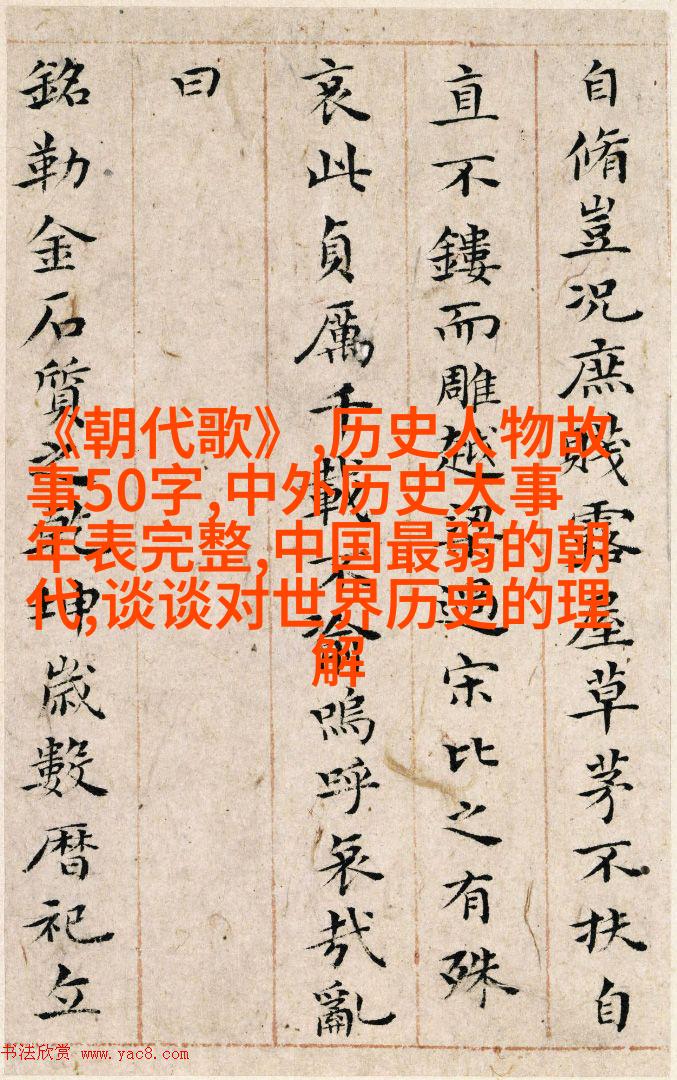 自脩豈況庶賤露屋草茅不扶自
直不鏤而雕越梁過宋比之有殊
哀此貞厲千載不渝嗚呼哀哉亂
曰
銘勒金石質之乾坤歲數暦祀立
《朝代歌》,历史人物故
事50字,中外历史大事
年表完整,中国最弱的朝
代,谈谈对世界历史的理
解
书法欣赏 www.yac8.com